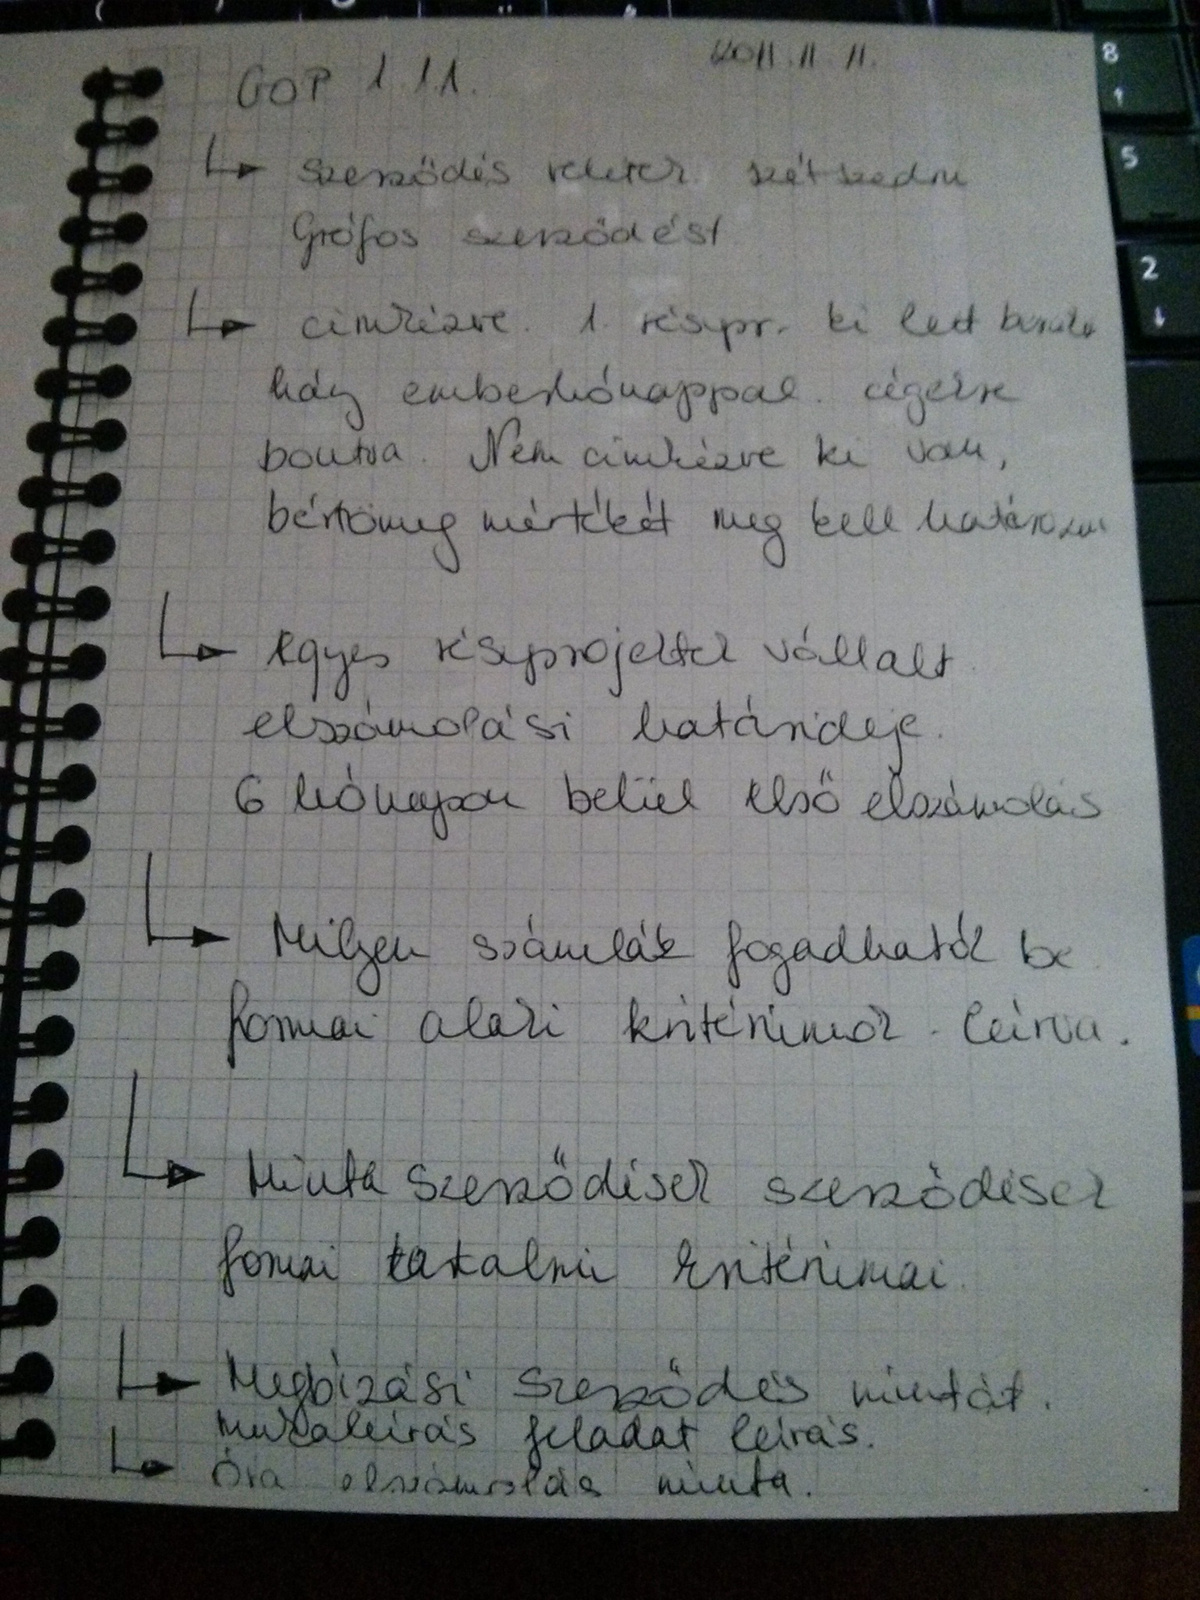 GOP 1.1.1. 2011.11.11.
szerződés szétszedni
Grófos szerződést
címkézve. 1. részpr. ki lett bontva
hány emberhónappal. cégekre
bontva. Nem címkézve ki van,
bértömeg mértékét meg kell határozni
Egyes részprojektek vállalt
elszámolási határideje.
6 hónapon belül első elszámolás
Milyen számlák fogadhatók be
formai alaki kritériumok leírva.
Minta szerződések szerződések
formai tartalmi kritériumai
Megbízási szerződés mintát.
munkaleírás feladat leírás.
Óra elszámolás minta.
8
5
2